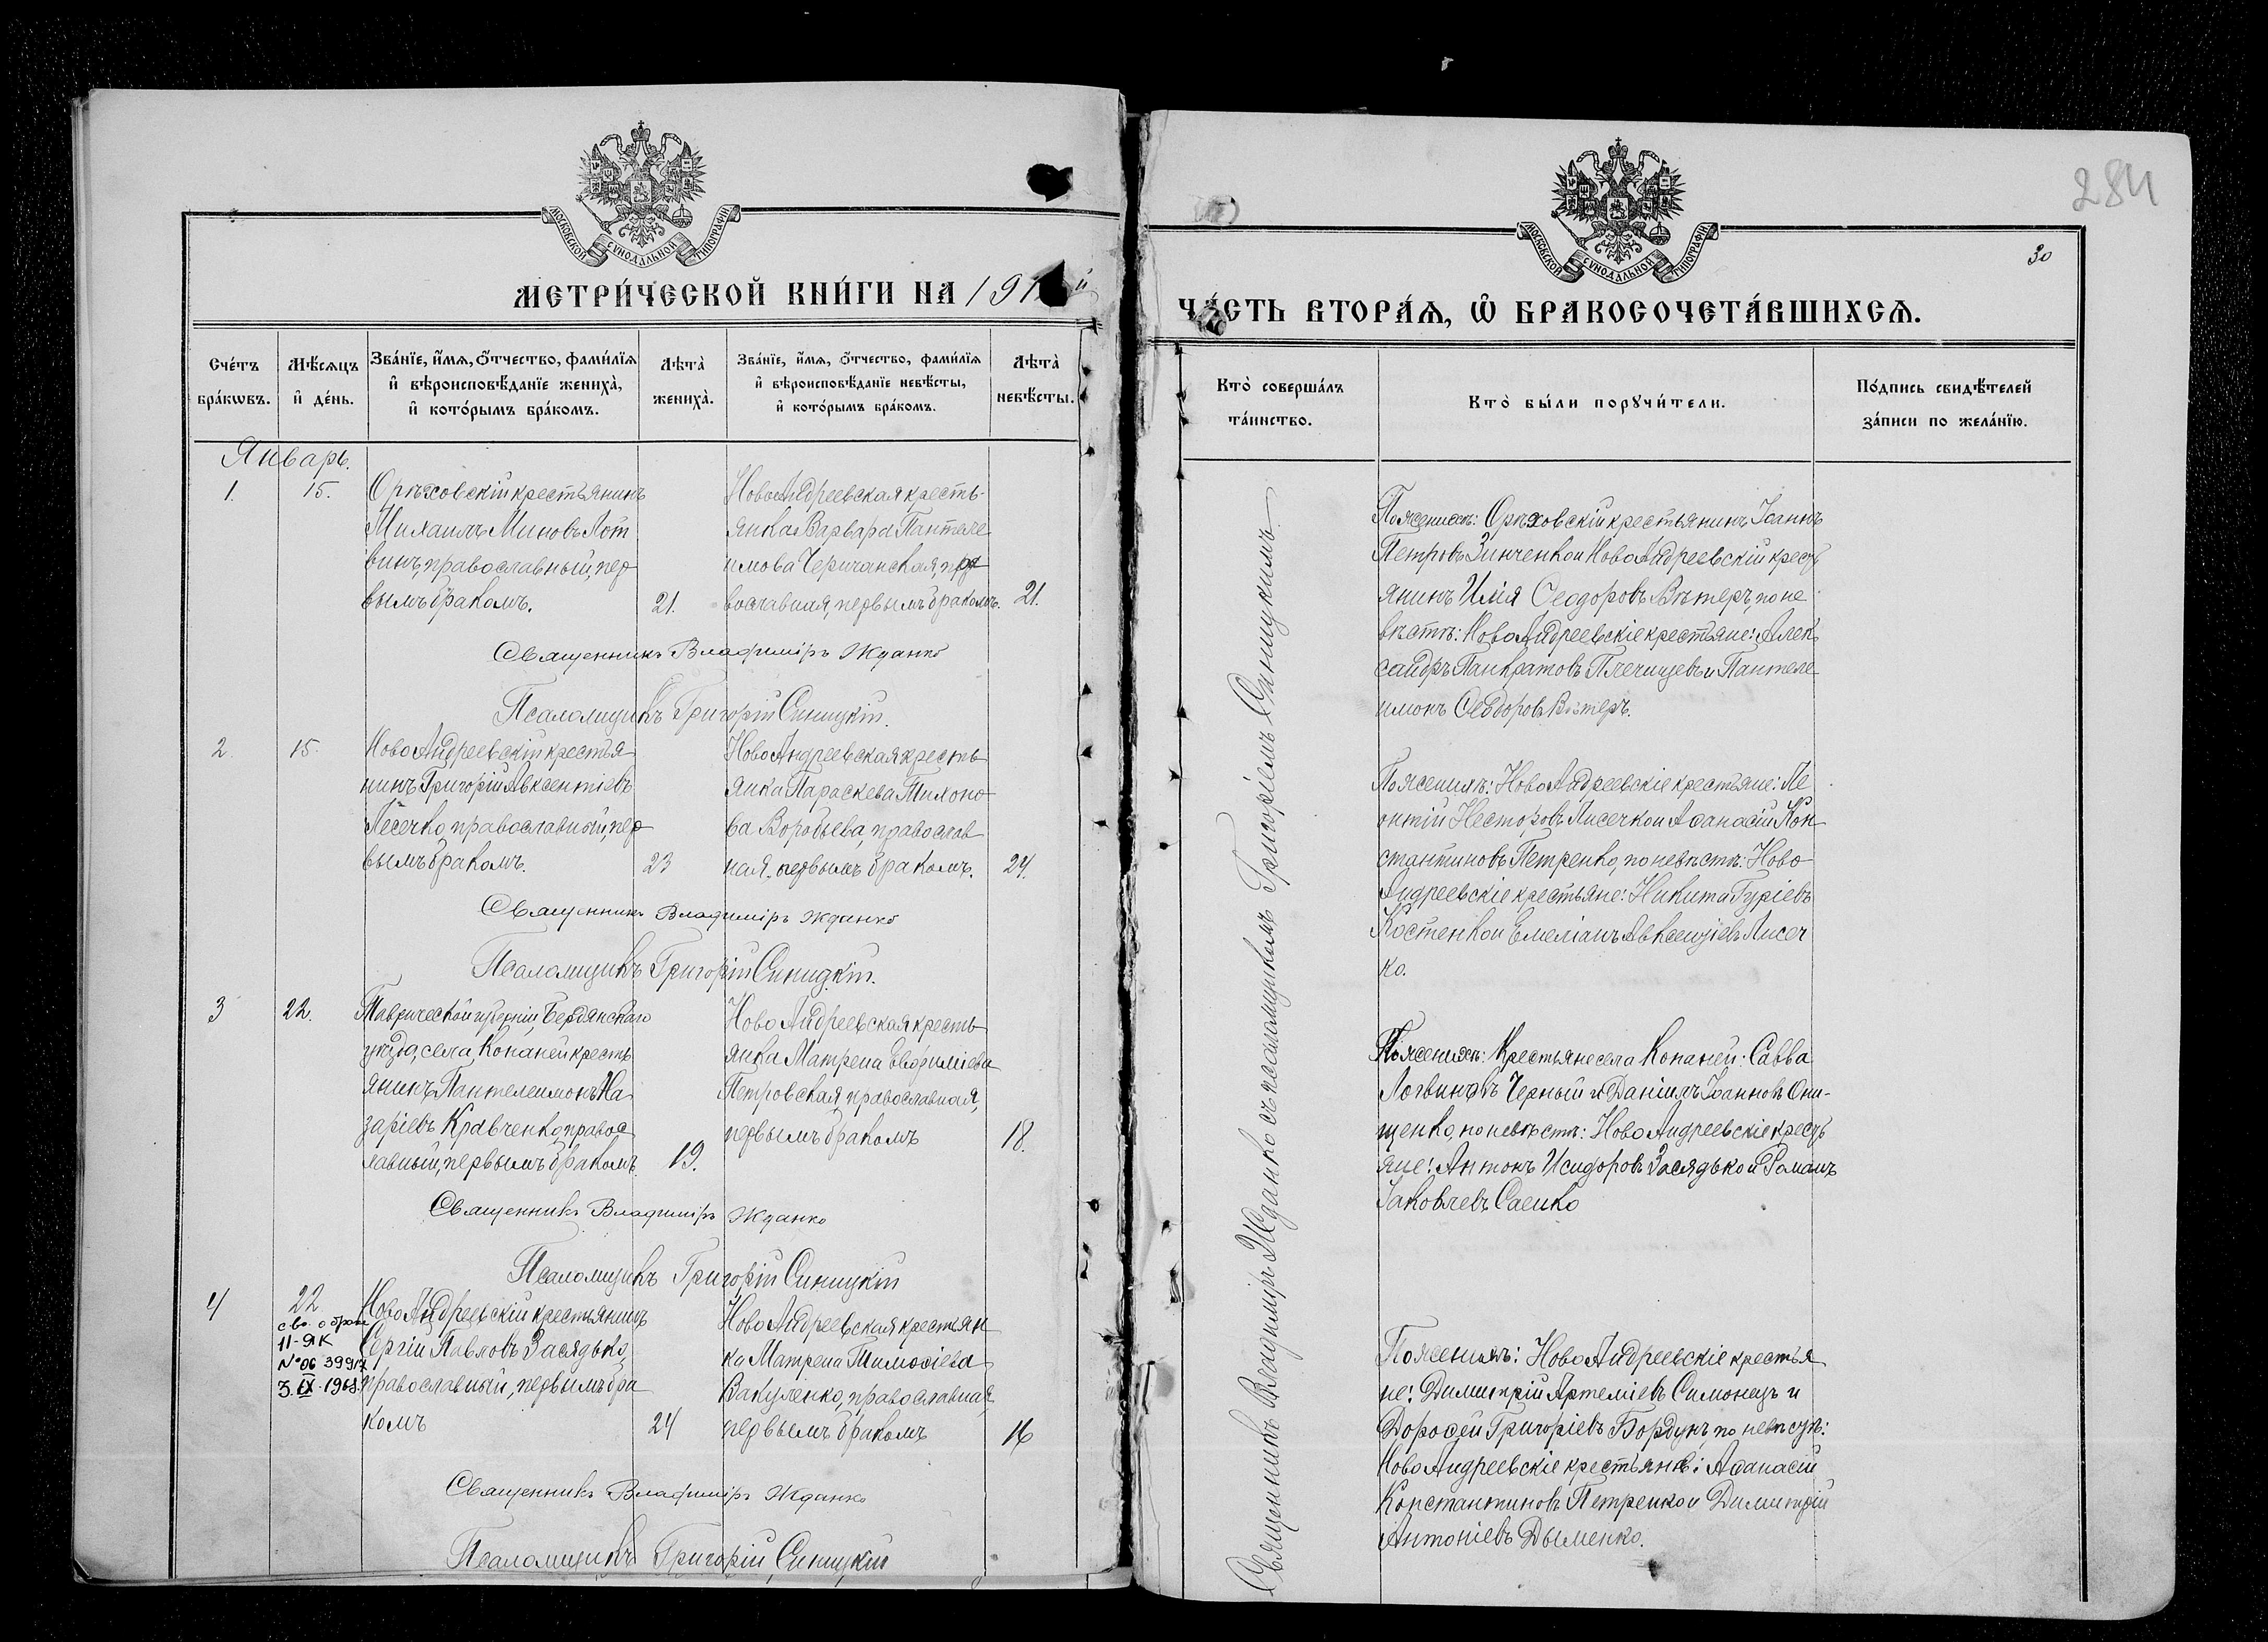 МОСКОВСКОЙ СѴНОДАЛЬНОЙ ТИПОГРАФІИ
МЕТРИ́ЧЕСКОЙ КНИ́ГИ НА 191
Сче́тъ бра́кѡвъ.
Мѣ́сѧцъ и҆ де́нь.
Зва́нїе, и҆́мѧ, ѻ҆́тчество, фами́лїѧ и҆ вѣроисповѣ́данїе жениха̀, и҆ кото́рымъ бра́комъ.
Лѣта̀ жениха̀.
Зва́нїе, и҆́мѧ, ѻ҆́тчество, фами́лїѧ и҆ вѣроисповѣ́данїе невѣ́сты, и҆ кото́рымъ бра́комъ.
Лѣта̀ невѣ́сты.
Январь.
1. 15.
Орѣховскій крестьянинъ
Михаилъ Миновъ Лот
винъ, православный, пер
вымъ бракомъ. 21.
НовоАндреевская кресть-
янка Варвара Пантеле
имова Черичанская, пра
вославная, первымъ бракомъ. 21.
Священникъ Владиміръ Жданко
Псаломщикъ Григорій Синицкій.
2. 15.
НовоАндреевскій крестья
нинъ Григорій Авксентіевъ
Лесечко, православный, пер
вымъ бракомъ. 23
НовоАндреевская кресть
янка Параскева Тихоно
ва Воробьева, православ
ная, первымъ бракомъ. 24.
Священникъ Владиміръ Жданко
Псаломщикъ Григорій Синицкій.
3 22.
Таврической губерніи, Бердянскаго
уѣзда, села Копаней кресть
янинъ Пантелеимонъ На
заріевъ Кравченко, правос
лавный, первымъ бракомъ. 19.
НовоАндреевская кресть
янка Матрена Евфиміева
Петровская православная,
первымъ бракомъ 18.
Священникъ Владиміръ Жданко
Псаломщикъ Григорій Синицкій
4 22
сво. о браке
11-ЯК
№06 39917
3.IX.1968.
НовоАндреевскій крестьянинъ
Сергій Павловъ Засядько,
православный, первымъ бра
комъ 24
НовоАндреевская крестьян
ка Матрена Тимоѳіева
Вакуленко, православная,
первымъ бракомъ 16
Священникъ Владиміръ Жданко
Псаломщикъ Григорій Синицкій
284
30
МОСКОВСКОЙ СѴНОДАЛЬНОЙ ТИПОГРАФІИ
ЧА́СТЬ ВТОРА́Ѧ, Ѡ҆ БРАКОСОЧЕТА́ВШИХСѦ.
Кто̀ соверша́лъ та́инство.
Кто̀ бы́ли порꙋчи́тели.
По́дпись свидѣ́телей за́писи по жела́нїю.
Священникъ Владиміръ Жданко съ псаломщикомъ Григоріемъ Синицкимъ.
По женихѣ: Орѣховскій крестьянинъ Іоаннъ
Петровъ Зинченко и НовоАндреевскій крест
янинъ Илія Ѳеодоровъ Вѣтеръ, по не
вѣстѣ: НовоАндреевскіе крестьяне: Алек
сандръ Панкратовъ Плечищевъ и Пантеле
имонъ Ѳеодоровъ Вѣтеръ.
По женихѣ: НовоАндреевскіе крестьяне: Ле
онтій Несторовъ Лисечко и Аѳанасій Кон
стантиновъ Петренко, по невѣстѣ: Ново
Андреевскіе крестьяне: Никита Гуріевъ
Костенко и Емеліанъ Авксентіевъ Лисеч
ко.
По женихѣ: Крестьяне села Копаней: Савва
Логвиновъ Черный и Даніилъ Іоанновъ Они-
щенко, по невѣстѣ: НовоАндреевскіе кресть
яне: Антонъ Исидоровъ Засядько и Романъ
Іаковлевъ Саенко
По женихѣ: НовоАндреевскіе крестья
не: Димитрій Артеміевъ Симонецъ и
Дороѳей Григоріевъ Бордунъ, по невѣстѣ:
НовоАндреевскіе крестьяне: Аѳанасій
Константиновъ Петренко и Димитрій
Антоніевъ Дыменко.